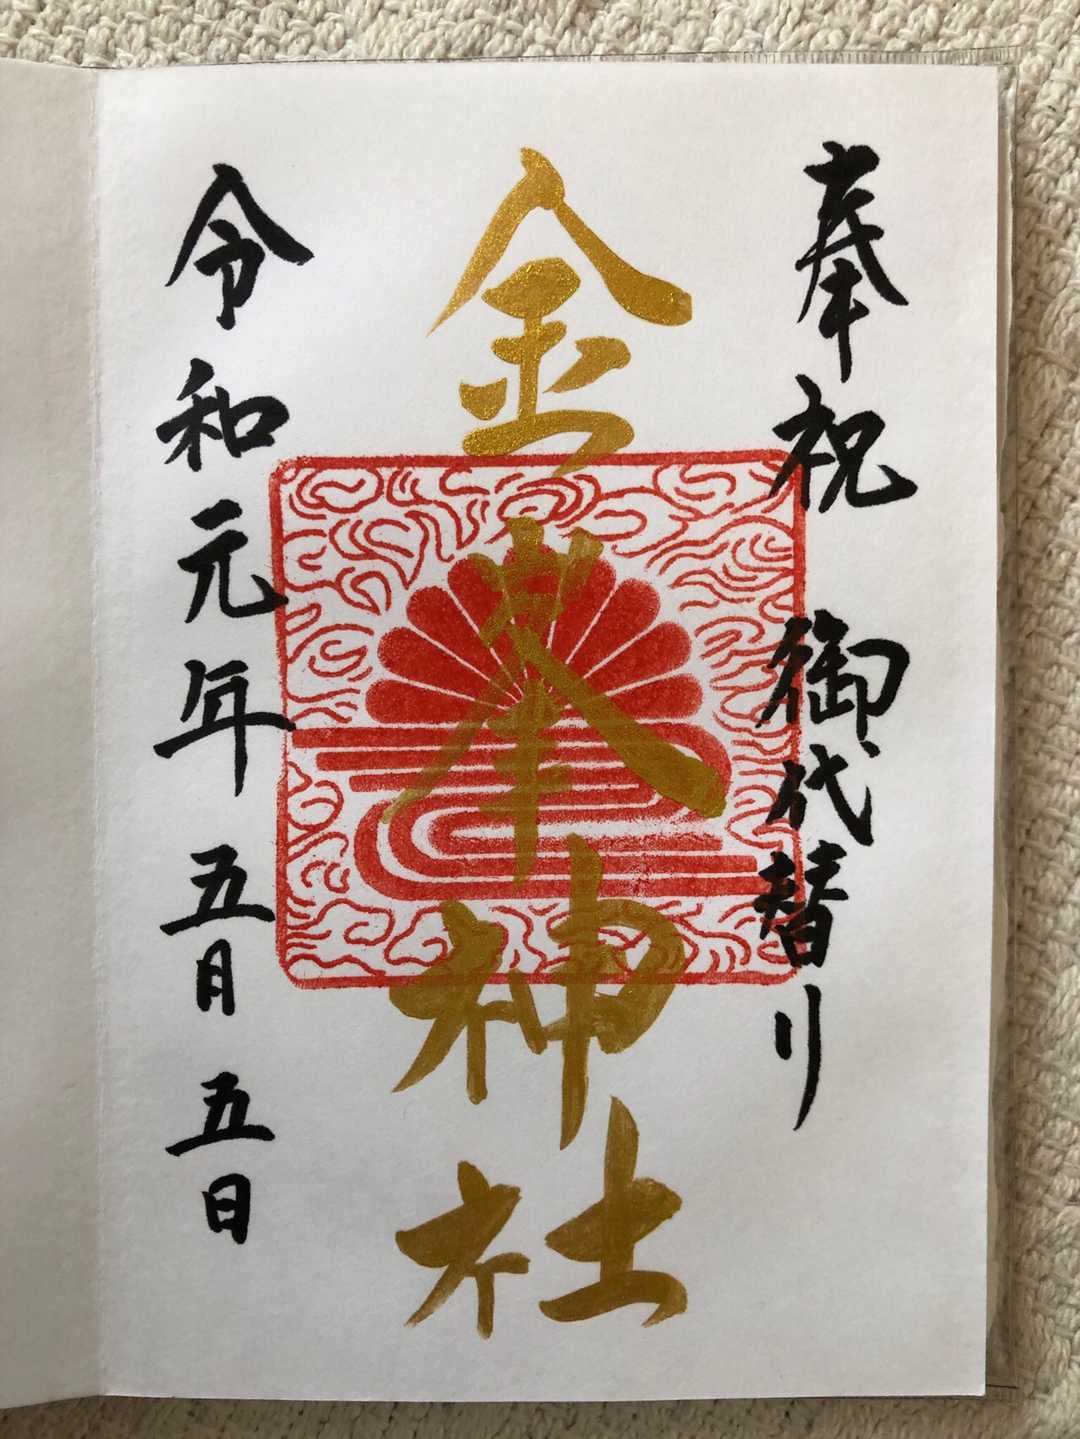 奉祝 御代替り
金峯神社
令和元年 五月 五日